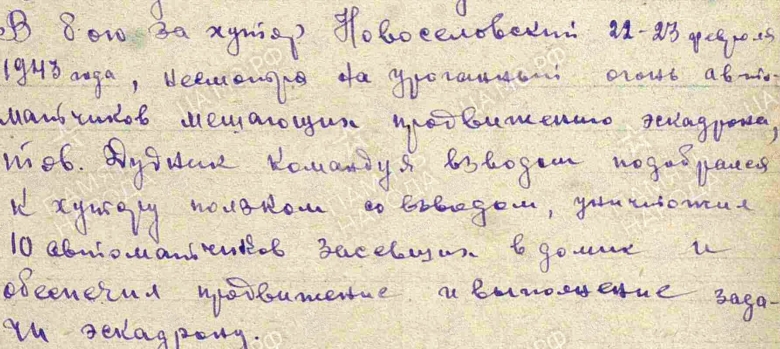 В бою за хутор Новоселовский 22-23 февраля
1943 года, несмотря на ураганный огонь авто-
матчиков мешающих продвижению эскадрона,
тов. Дудник командуя взводом подобрался
к хутору ползком со взводом, уничтожил
10 автоматчиков засевших в домик и
обеспечил продвижение и выполнение зада-
чи эскадрону.